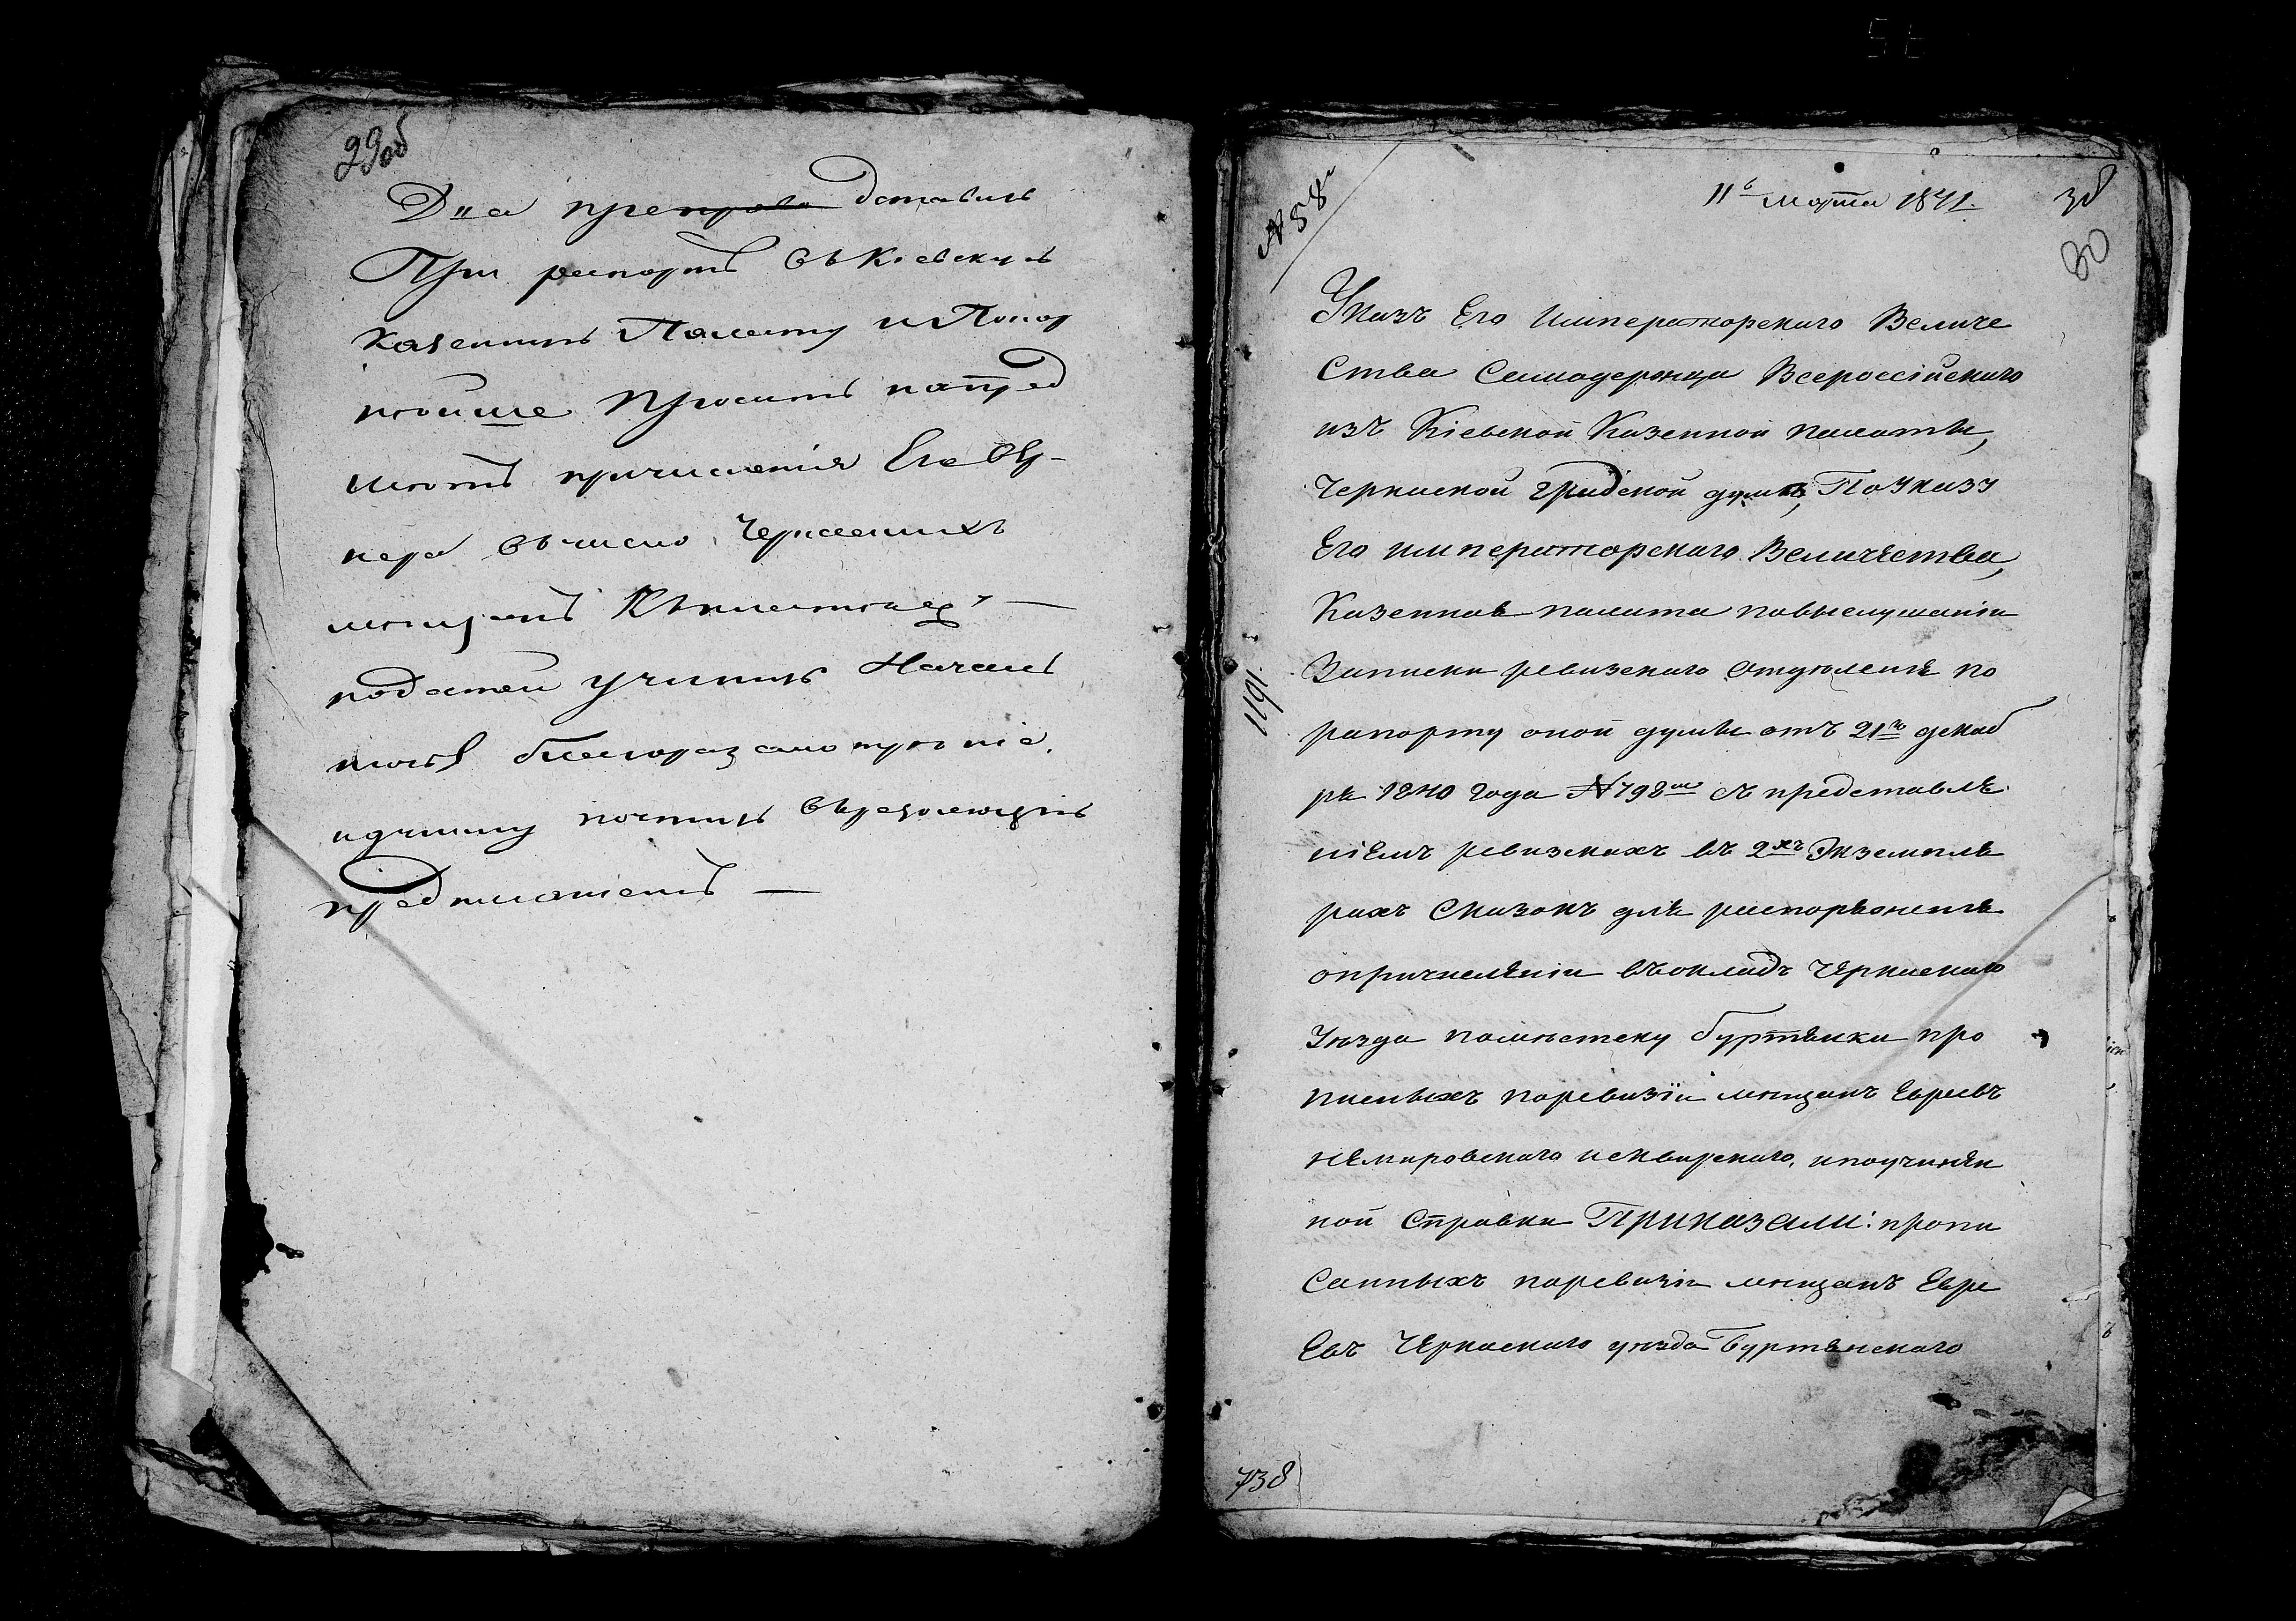 29об
Два препрово дставить
При рапортѣ въ Кіевскую
Казенную Палату и Покор
нѣйше просить
причисленія Его
въ число Черкаскихъ
мещанъ Къ платежу —
податей учинить Начал
благоразсмотреніе
почтить въ резолюцію
предписаніемъ —
№ 58
11 марта 1841.
30
30
Указъ Его Императорскаго Величе
Ства Самодержца Всероссійскаго
изъ Кіевской Казенной палаты,
Черкаской градской думѣ, По Указу
Его императорскаго Величества,
Казенная палата повыслушаніи
Записки ревизскаго Отделенія по
рапорту оной думы отъ 21го декаб
ря 1840 года № 798м съ представле
ніемъ ревизскихъ въ 2хъ Экземпля
рахъ Сказокъ для распоряженія
опричисленіи въокладъ Черкаскаго
Уѣзда поместеку буртянки про
писныхъ поревизіи мещанъ Евреевъ
немировскаго исквирскаго, и поучинен
ной Справки Приказали: пропи
Санныхъ поревизіи мещанъ Евре
Евъ Черкаскаго уезда Буртянскаго
1191.
738